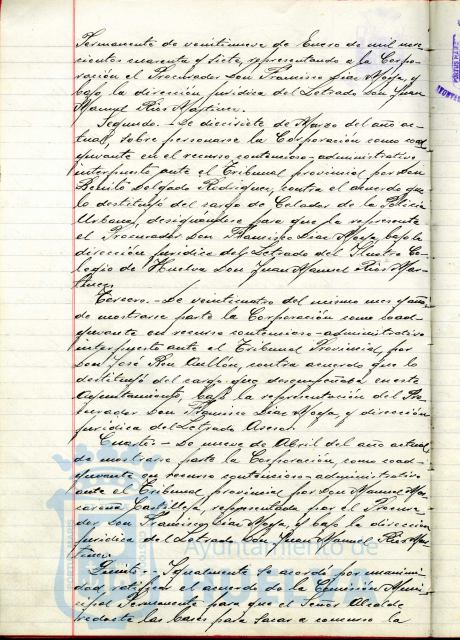 Permanente de veintinueve de Enero de mil nove-
cientos cuarenta y siete, representando a la Corpo-
ración el Procurador Don Francisco Díaz Mosfa, y
bajo la dirección jurídica del Letrado Don Juan
Manuel Ríos Martínez.
Segundo.- De diecisiete de Marzo del año ac-
tual, sobre personarse la Corporación como coad-
yuvante en el recurso contencioso-administrativo
interpuesto ante el Tribunal provincial por Don
Benito Delgado Rodríguez, contra el acuerdo que
lo destituyó del cargo de Celador de la Policía
Urbana, designándose para que la represente
el Procurador Don Francisco Díaz bajo la
dirección jurídica del Letrado del Ilustre Co-
legio de Huelva Don Juan Manuel Ríos Mar-
tínez.
Tercero.- De veinticuatro del mismo mes y año,
de mostrarse parte la Corporación como coad-
yuvante en recurso contencioso-administrativo
interpuesto ante el Tribunal Provincial, por
Don José contra acuerdo que lo
destituyó del cargo que desempeñaba en este
Ayuntamiento, bajo la representación del Pro-
curador Don Francisco Díaz y dirección
jurídica del Letrado
Cuarto.- De nueve de Abril del año actual,
de mostrarse parte la Corporación, como coad-
yuvante en recurso contencioso-administrativo
ante el Tribunal provincial por Don Manuel
Castilleja, representada por el Procura-
dor Don Francisco Díaz y bajo la dirección
jurídica del Letrado Don Juan Manuel Ríos Mar-
tínez.
Quinto.- Igualmente se acordó por unanimi-
dad ratificar el acuerdo de la Comisión Muni-
cipal Permanente para que el Señor Alcalde
redacte las bases para sacar a concurso la
Ayuntamiento de
HUELVA